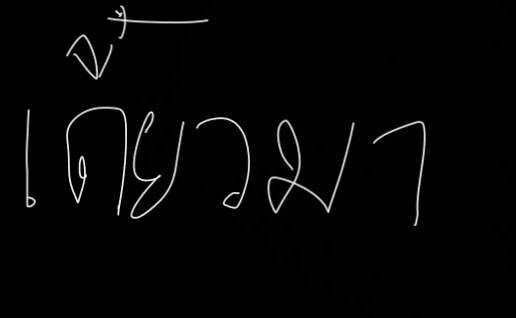 เดี๋ยวมา